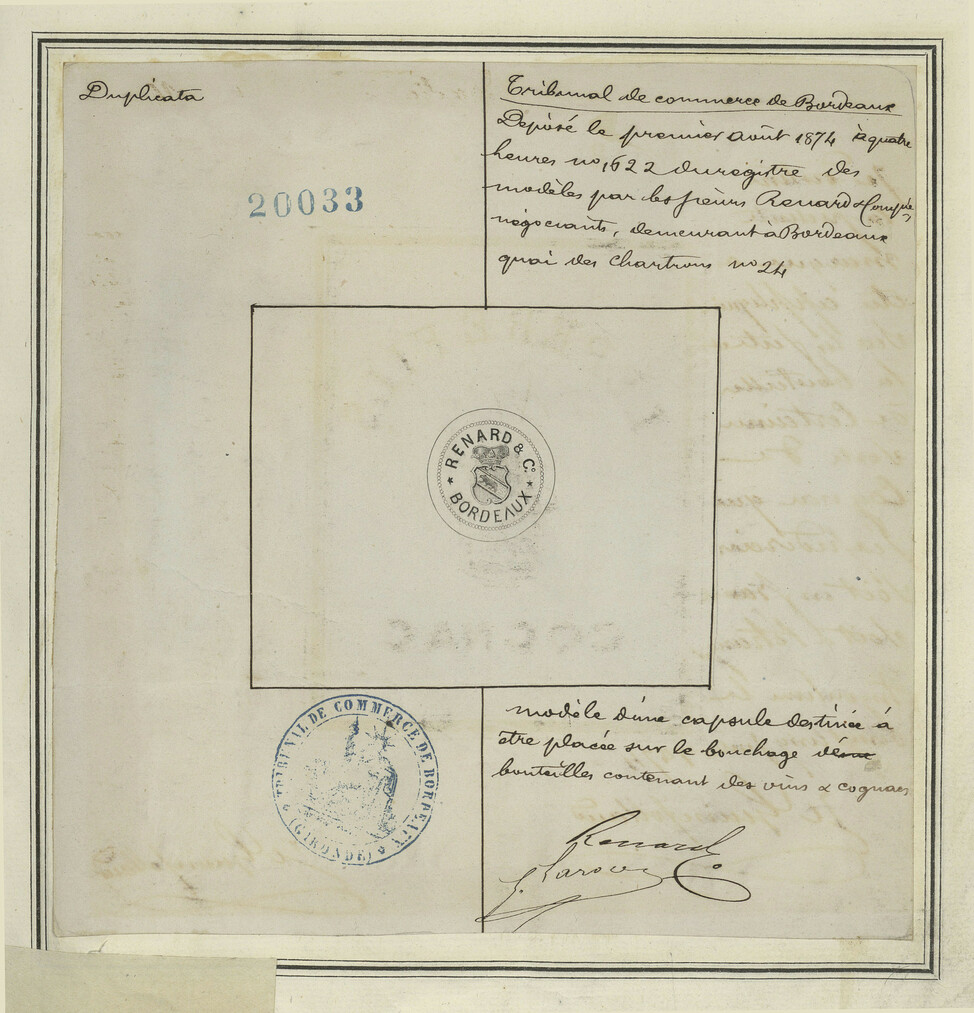 Duplicata
20033
Tribunal de commerce de Bordeaux
Déposé le premier août 1874 à quatre
heures no 1622 du registre des
modèles par les sieurs Renard & Compie
négociants, demeurant à Bordeaux
quai des Chartrons no 24
RENARD & Co
BORDEAUX
modèle d'une capsule destinée à
etre placée sur le bouchage
bouteilles contenant des vins & cognacs
TRIBUNAL DE COMMERCE DE BORDEAUX
(GIRONDE)
Renard
Co
COGNAC